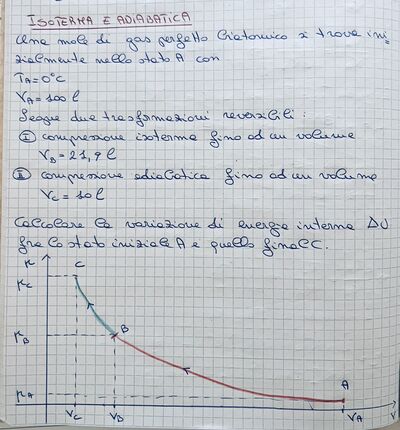 ISOTERMA E ADIABATICA
Una mole di gas perfetto biatomico si trova ini=
zialmente nello stato A con
TA=0°C
VA=100 l
Segue due trasformazioni reversibili:
I compressione isoterma fino ad un volume
VB=21,9 l
II compressione adiabatica fino ad un volume
VC=10 l
Calcolare la variazione di energia interna ΔU
fra lo stato iniziale A e quello finale C.
p
C
pC
B
pB
A
pA
VC
VB
VA
V